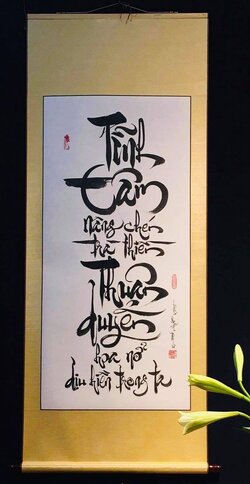 Tĩnh
tâm
nâng chén
trà thiền
Thuận
duyên
hoa nở
dịu hiền trong ta